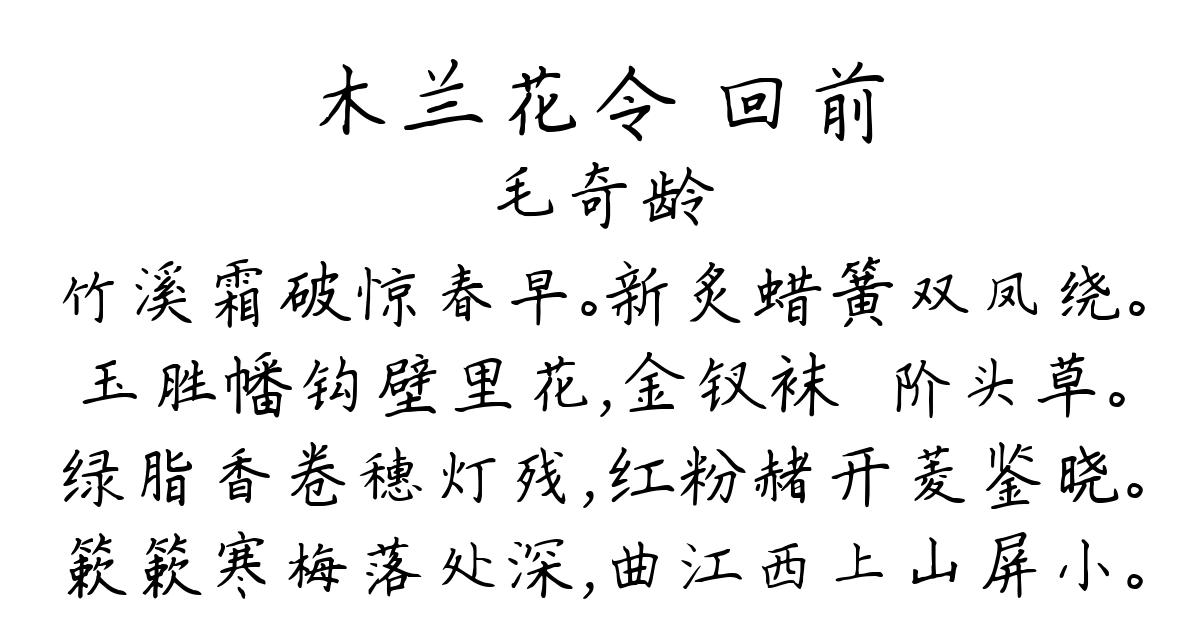 木兰花令 回前
毛奇龄
竹溪霜破惊春早。新炙蜡簧双凤绕。
玉胜幡钩壁里花,金钗袜 阶头草。
绿脂香卷穗灯残,红粉赭开菱鉴晓。
簌簌寒梅落处深,曲江西上山屏小。